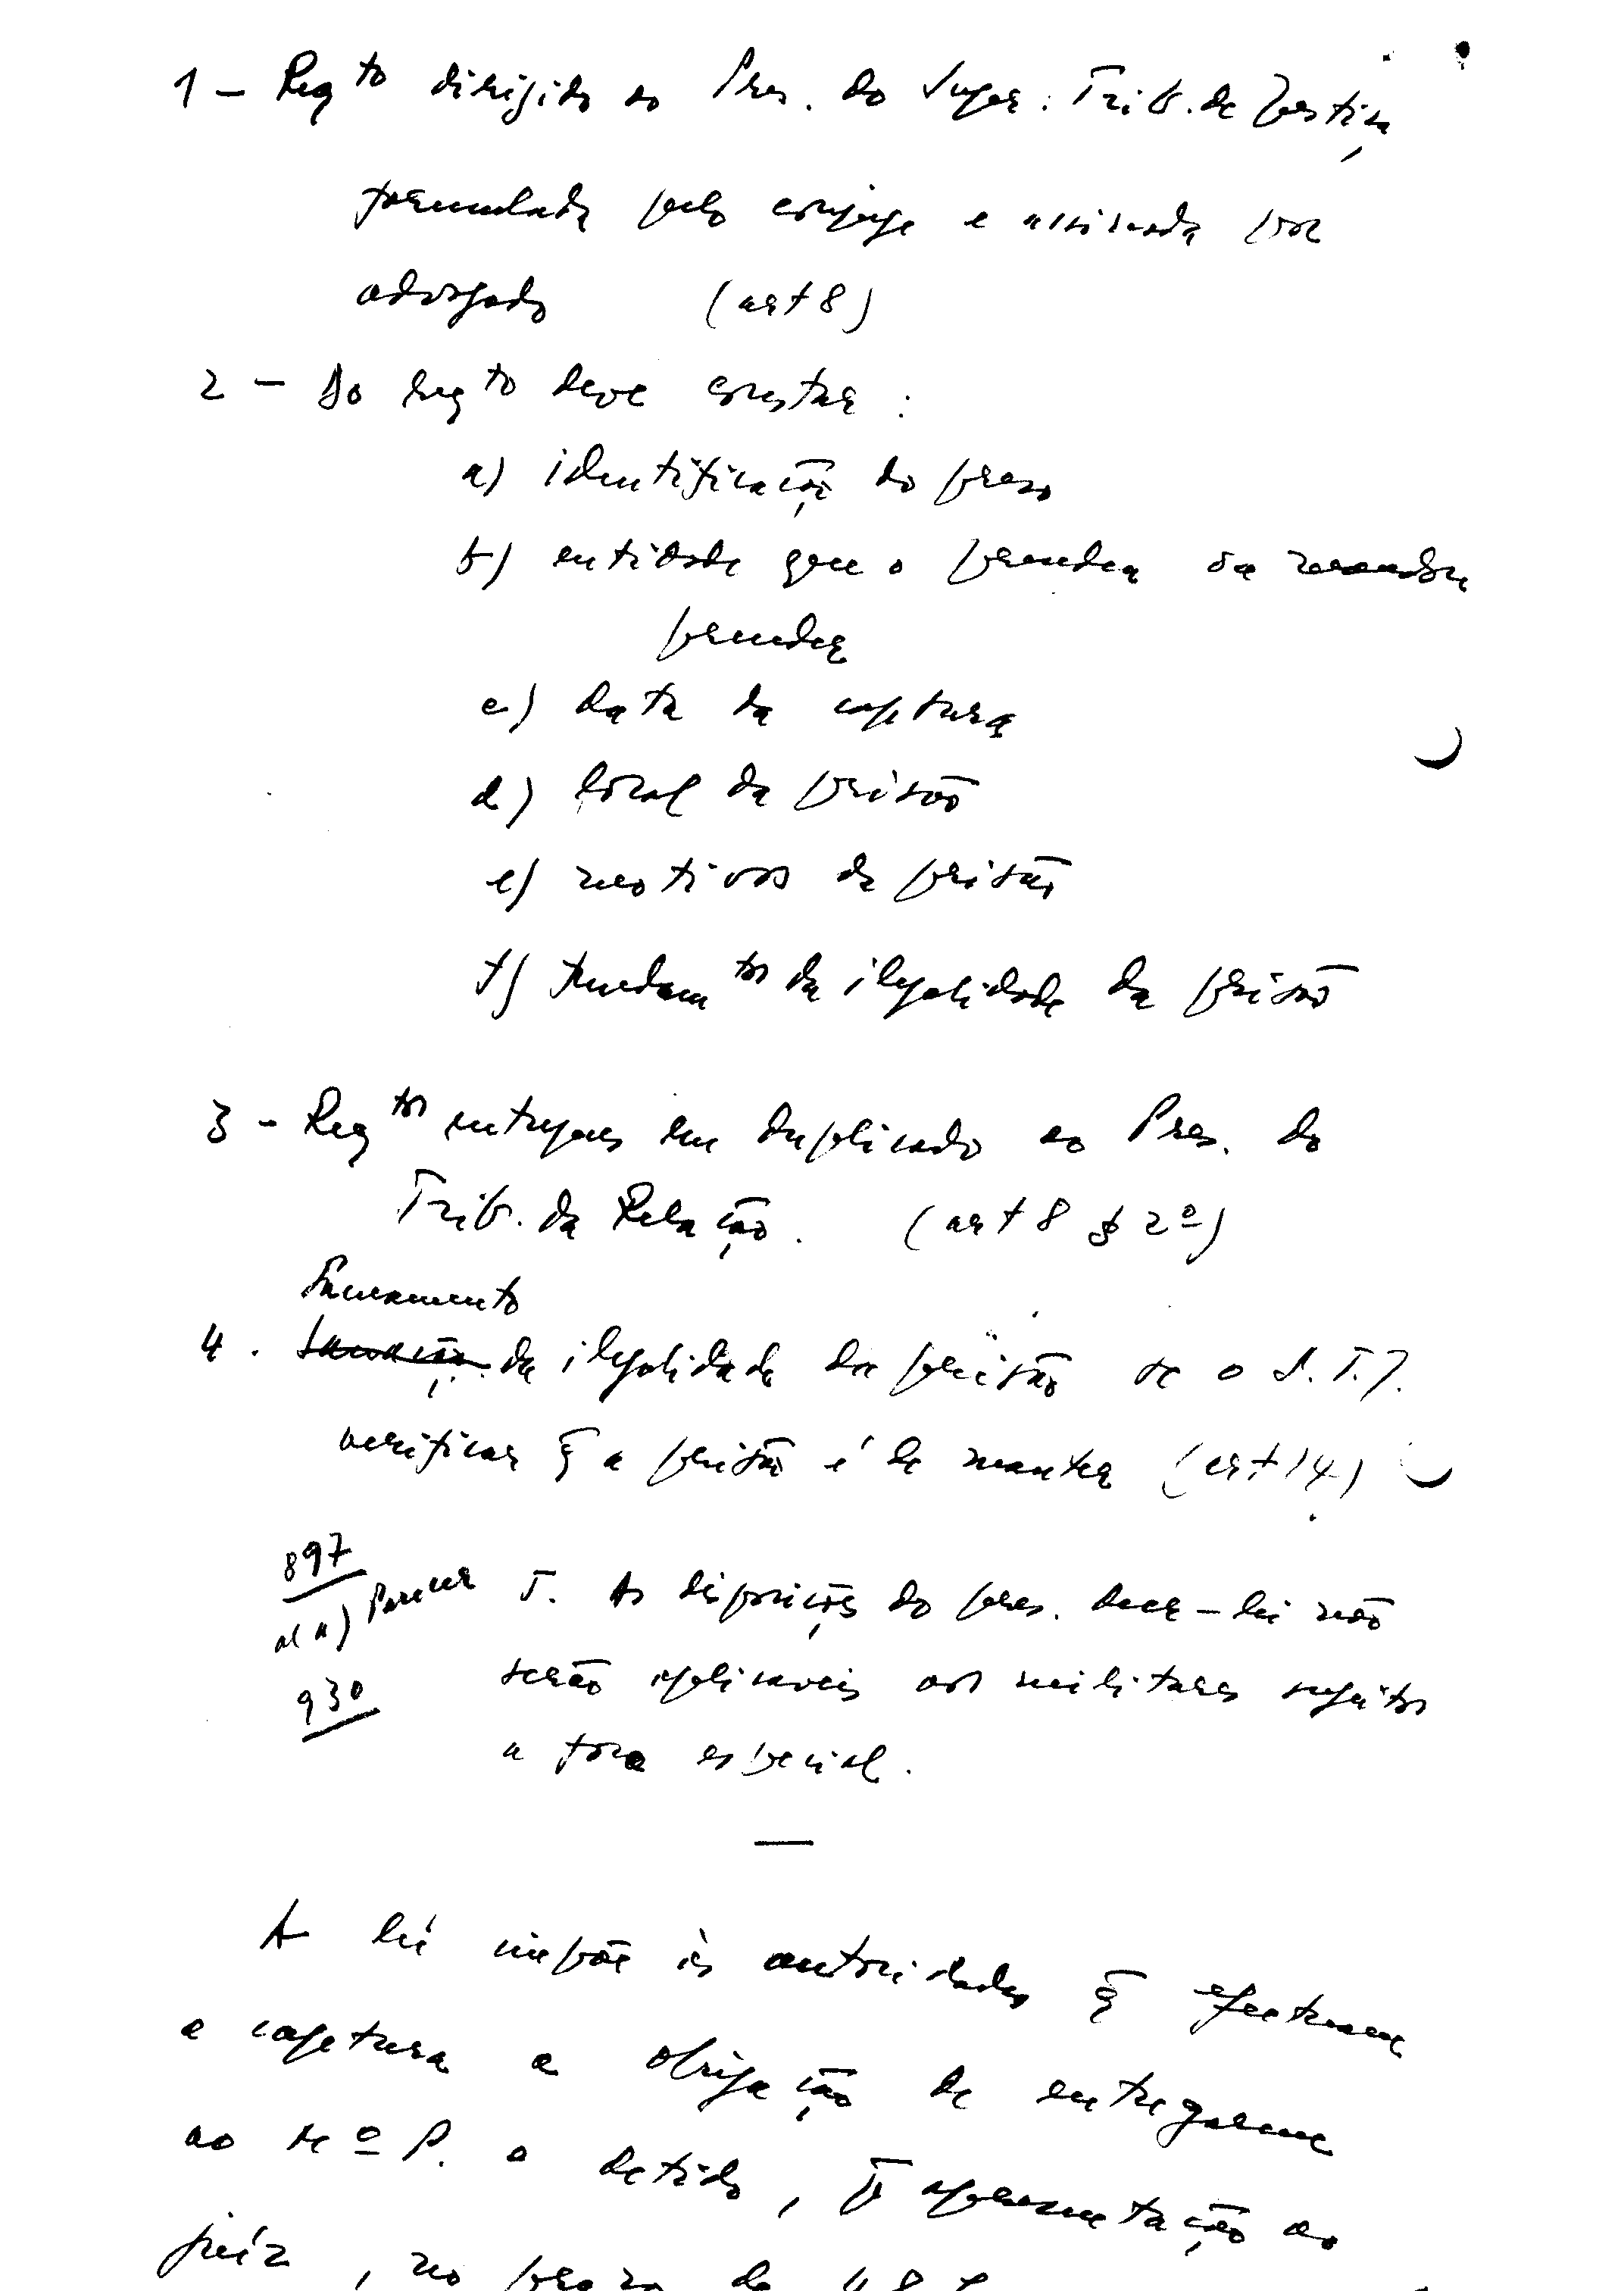 1 – Reqto dirigido ao Pres. do Super. Trib. de Justiça
formulada pelo conjuge e assinada por
advogado (art 8)
2 – Do reqto deve constar :
a) identificação do preso
b) entidade que o prendeu ou mandou
prender
c) data da captura
d) local da prisão
e) motivos da prisão
f) fundamtos da ilegalidade da prisão
3 – Reqtos entregues em duplicado ao Pres. do
Trib. da Relação. (art 8 § 2º)
Sanamento
4 . Sanação da ilegalidade da prisão se o S.T.J.
verificar q̃ a prisão é de manter (art 14)
897
al a) Parecer 5. As disposições do pres. decr-lei não
930
serão aplicaveis aos militares sujeitos
a foro especial.
—
A lei impõe às autoridades q̃ efectuem
a captura a obrigação de entregarem
ao Mº P. o detido, p̄ apresentação ao
juíz, no prazo de 48 h